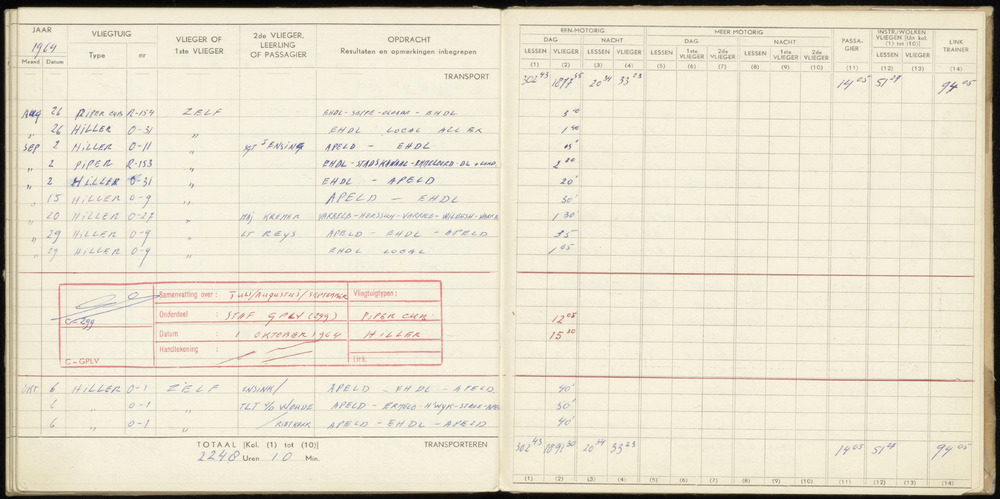 JAAR 1964 VLIEGTUIG VLIEGER OF 1ste VLIEGER 2de VLIEGER, LEERLING OF PASSAGIER OPDRACHT Resultaten en opmerkingen inbegrepen
Maand Datum Type nr
TRANSPORT
AUG 26 PIPER CUB R-154 ZELF EHDL - EHDL
" 26 HILLER O-31 " EHDL LOCAL
SEP 2 HILLER O-11 " SGT APELD - EHDL
" 2 PIPER R-153 " EHDL - STADSKANAAL - - DL
" 2 HILLER O-31 " EHDL - APELD
" 15 HILLER O-9 " APELD - EHDL
" 20 HILLER O-27 " MAJ KREMER VARSSELD
" 29 HILLER O-9 " LT REYS APELD - EHDL - APELD
" 29 HILLER O-9 " EHDL LOCAL
Samenvatting over : JULI/AUGUSTUS/SEPTEMBER Vliegtuigtypen :
C-299 Onderdeel : STAF GPLV (299) PIPER CUB
Datum : 1 OKTOBER 1964 HILLER
Handtekening :
C - GPLV Link
OKT 6 HILLER O-1 ZELF ENSINK/ APELD - EHDL - APELD
6 " O-1 " TLT v/d WOUDE APELD - ERMELO - H'WYK
6 " O-1 " APELD - EHDL - APELD
TOTAAL [Kol. (1) tot (10)] TRANSPORTEREN
2248 Uren 10 Min.
EEN-MOTORIG MEER MOTORIG PASSA-GIER INSTR./WOLKEN VLIEGEN [Uit kol. (1) tot (10)] LINK TRAINER
DAG NACHT DAG NACHT
LESSEN VLIEGER LESSEN VLIEGER LESSEN 1ste VLIEGER 2de VLIEGER LESSEN 1ste VLIEGER 2de VLIEGER LESSEN VLIEGER
(1) (2) (3) (4) (5) (6) (7) (8) (9) (10) (11) (12) (13) (14)
302 43 1877 55 20 34 33 23 14 05 51 27 94 05
1 40
05'
2 20
20'
30'
1 30
35
1 05
12 05
15 30
40'
50'
40'
302 43 1891 30 20 34 33 23 14 05 51 27 94 05
(1) (2) (3) (4) (5) (6) (7) (8) (9) (10) (11) (12) (13) (14)